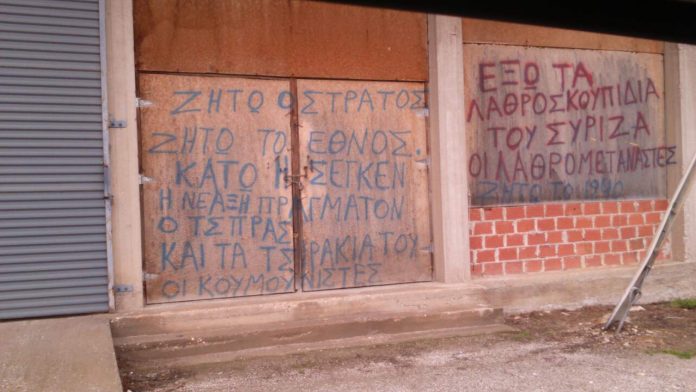 ΖΗΤΩ Ο ΣΤΡΑΤΟΣ
ΖΗΤΟ ΤΟ ΕΘΝΟΣ.
ΚΑΤΩ Η ΣΕΓΚΕΝ
Η ΝΕΑΞΗ ΠΡΑΓΜΑΤΟΝ
Ο ΤΣΠΡΑΣ
ΚΑΙ ΤΑ ΤΣΙΡΑΚΙΑ ΤΟΥ
ΟΙ ΚΟΥΜΟΥΝΙΣΤΕΣ
ΕΞΩ ΤΑ
ΛΑΘΡΟΣΚΟΥΠΙΔΙΑ
ΤΟΥ ΣΥΡΙΖΑ
ΟΙ ΛΑΘΡΟΜΕΤΑΝΑΣΤΕΣ
ΖΗΤΩ ΤΟ 1940